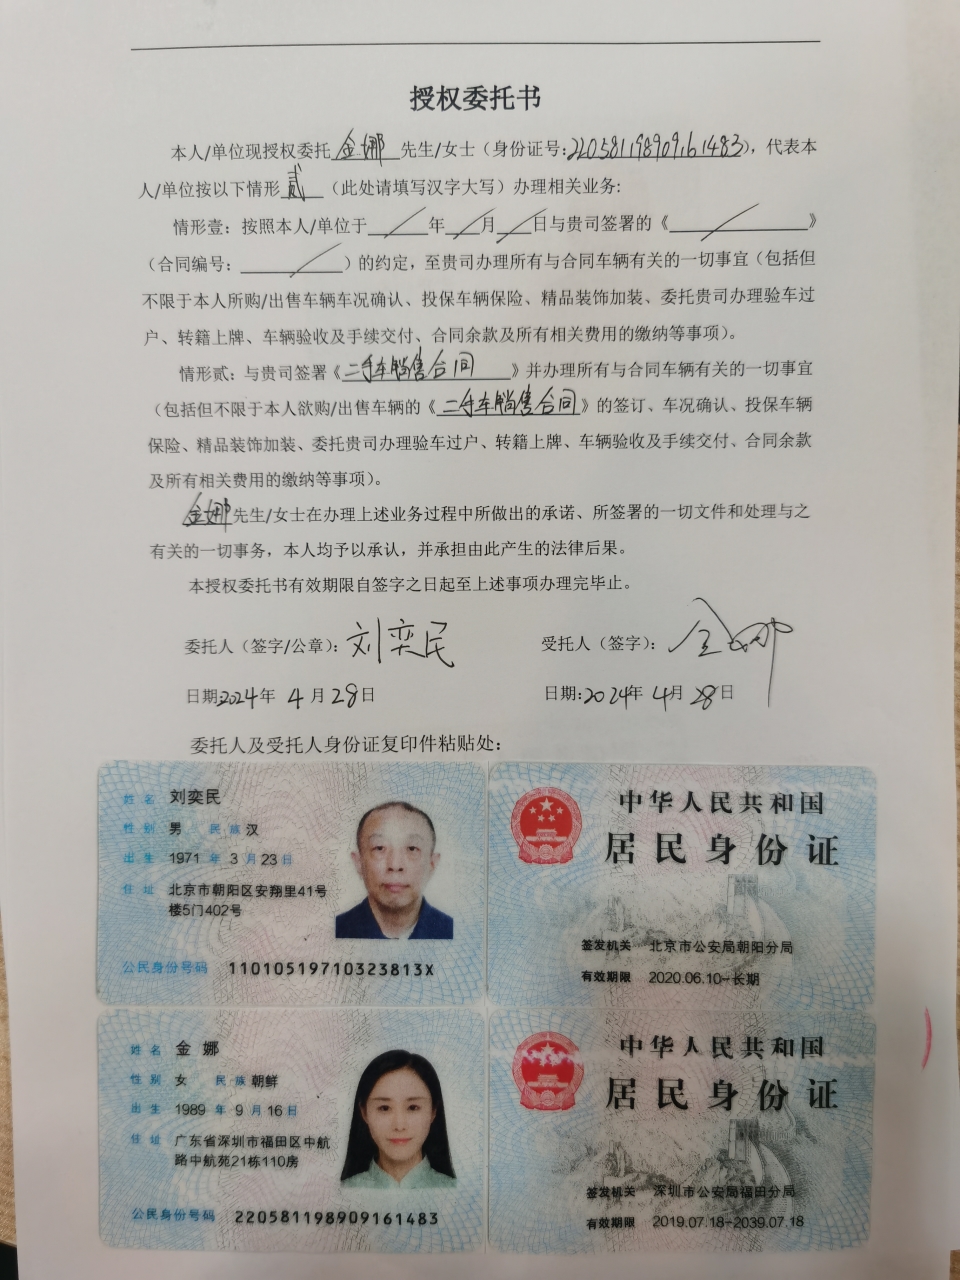 授权委托书
本人/单位现授权委托金娜先生/女士（身份证号：220581198909161483），代表本
人/单位按以下情形贰（此处请填写汉字大写）办理相关业务：
情形壹：按照本人/单位于／年／月／日与贵司签署的《／》
（合同编号：／）的约定，至贵司办理所有与合同车辆有关的一切事宜（包括但
不限于本人所购/出售车辆车况确认、投保车辆保险、精品装饰加装、委托贵司办理验车过
户、转籍上牌、车辆验收及手续交付、合同余款及所有相关费用的缴纳等事项）。
情形贰：与贵司签署《二手车销售合同》并办理所有与合同车辆有关的一切事宜
（包括但不限于本人欲购/出售车辆的《二手车销售合同》的签订、车况确认、投保车辆
保险、精品装饰加装、委托贵司办理验车过户、转籍上牌、车辆验收及手续交付、合同余款
及所有相关费用的缴纳等事项）。
金娜先生/女士在办理上述业务过程中所做出的承诺、所签署的一切文件和处理与之
有关的一切事务，本人均予以承认，并承担由此产生的法律后果。
本授权委托书有效期限自签字之日起至上述事项办理完毕止。
委托人（签字/公章）：刘奕民 受托人（签字）：金娜
日期：2024年 4月28日 日期：2024年 4月 28日
委托人及受托人身份证复印件粘贴处：
姓名 刘奕民
性别 男 民族 汉
出生 1971 年 3 月 23 日
住址 北京市朝阳区安翔里41号
楼5门402号
公民身份号码 11010519710323813X
中华人民共和国
居民身份证
签发机关 北京市公安局朝阳分局
有效期限 2020.06.10-长期
姓名 金娜
性别 女 民族 朝鲜
出生 1989 年 9 月 16 日
住址 广东省深圳市福田区中航
路中航苑21栋110房
公民身份号码 220581198909161483
中华人民共和国
居民身份证
签发机关 深圳市公安局福田分局
有效期限 2019.07.18-2039.07.18